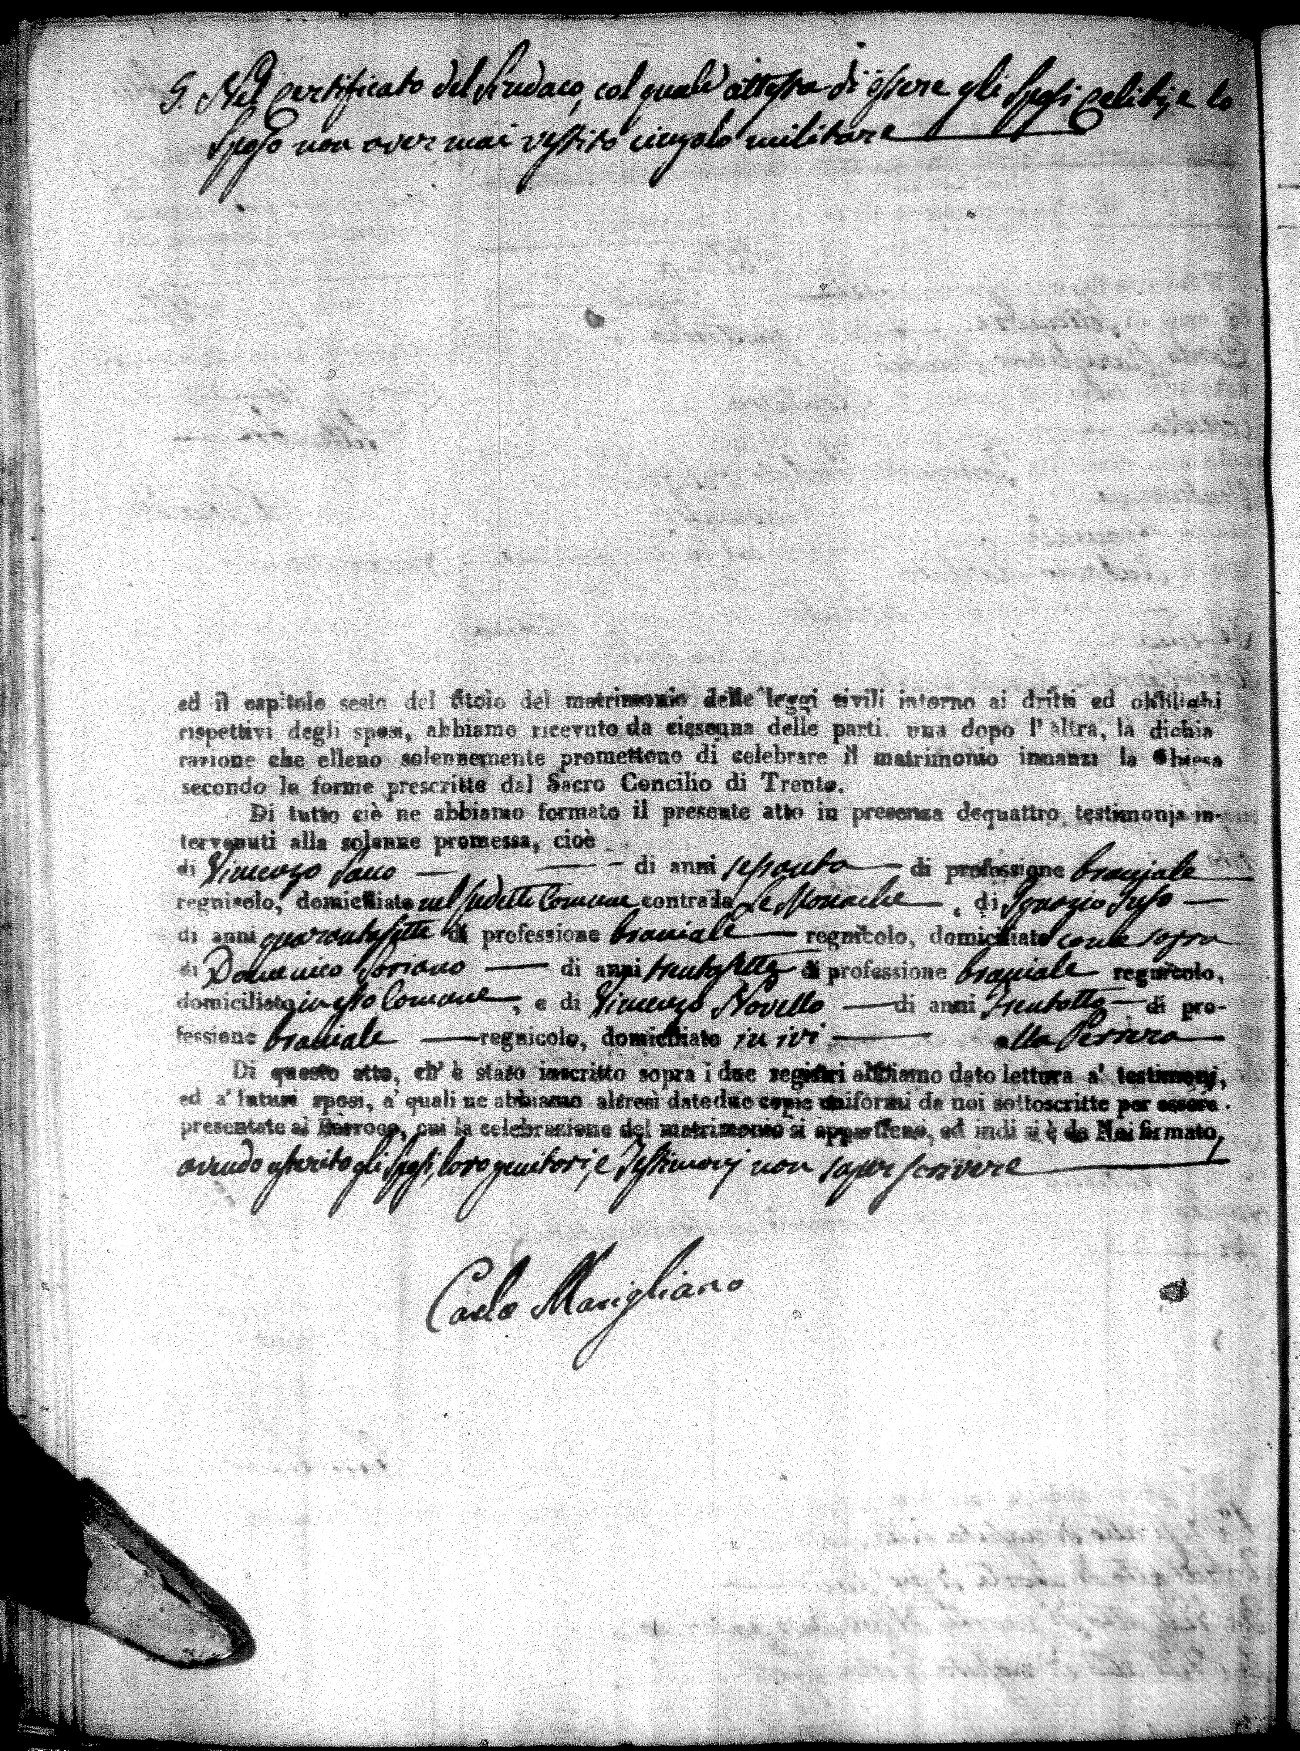 5. Nel certificato del Sindaco, col quale attesta di essere gli Sposi celibi, e lo
Sposo non aver mai vestito cingolo militare
ed il capitolo sesto del titolo del matrimonio delle leggi civili intorno ai dritti ed obblighi
rispettivi degli sposi, abbiamo ricevuto da ciascuna delle parti, una dopo l'altra, la dichia
razione che elleno solennemente promettono di celebrare il matrimonio innanzi la Chiesa
secondo le forme prescritte dal Sacro Concilio di Trento.
Di tutto ciò ne abbiamo formato il presente atto in presenza de quattro testimonj in-
tervenuti alla solenne promessa, cioè
di Vincenzo di anni sessanta di professione bracciale
regnicolo, domiciliato nel sudetto Comune contrada Le Monache, di Ignazio
di anni quarantasette di professione bracciale regnicolo, domiciliato come sopra
di Domenico Soriano di anni trentasette di professione bracciale regnicolo,
domiciliato in esso Comune, e di Vincenzo Novello di anni trentotto di pro-
fessione bracciale regnicolo, domiciliato in ivi alla
Di questo atto, ch' è stato inscritto sopra i due registri abbiamo dato lettura a' testimonj,
ed a' futuri sposi, a' quali ne abbiamo altresì date due copie uniformi da noi sottoscritte per essere
presentate al Parroco, cui la celebrazione del matrimonio si appartiene, ed indi si è da Noi firmato,
avendo asserito gli Sposi, loro genitori, e Testimonj non saper scrivere
Carlo Marigliano